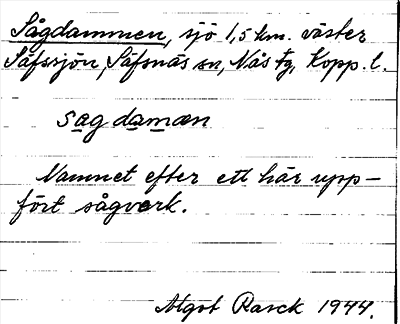 Sågdammen, sjö 1,5 km. väster
Säfssjön, Säfsnäs sn, Nås tg, Kopp. l.
sagdaman
Namnet efter ett här upp-
fört sågverk.
Algot Rasck 1944.